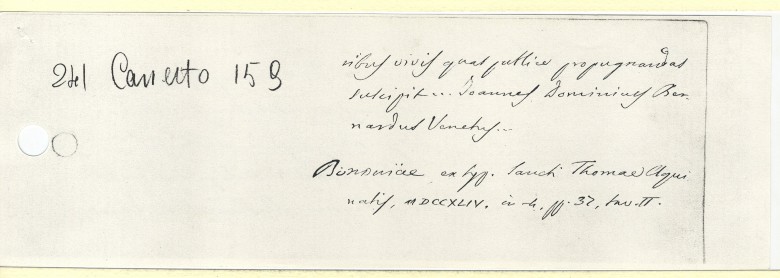 2del Carretto 159
ribus vivis quas publice propugnandas
suscipit... Joannes Dominicus Ber-
nardus Venetus...
Bononiae ex typ. Sancti Thomae Aqui
natis, MDCCXLIV. in-4, pp. 32, tav. II.